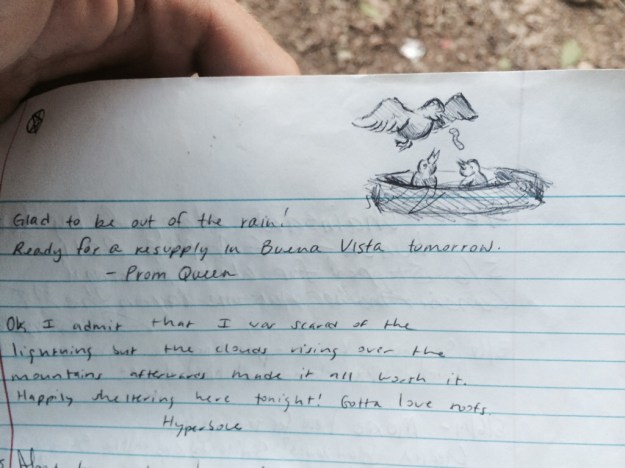 Glad to be out of the rain!
Ready for a resupply in Buena Vista tomorrow.
- Prom Queen
Ok I admit that I was scared of the
lightning but the clouds rising over the
mountains afterwards made it all worth it.
Happily sheltering here tonight! Gotta love roofs.
Hyperbole